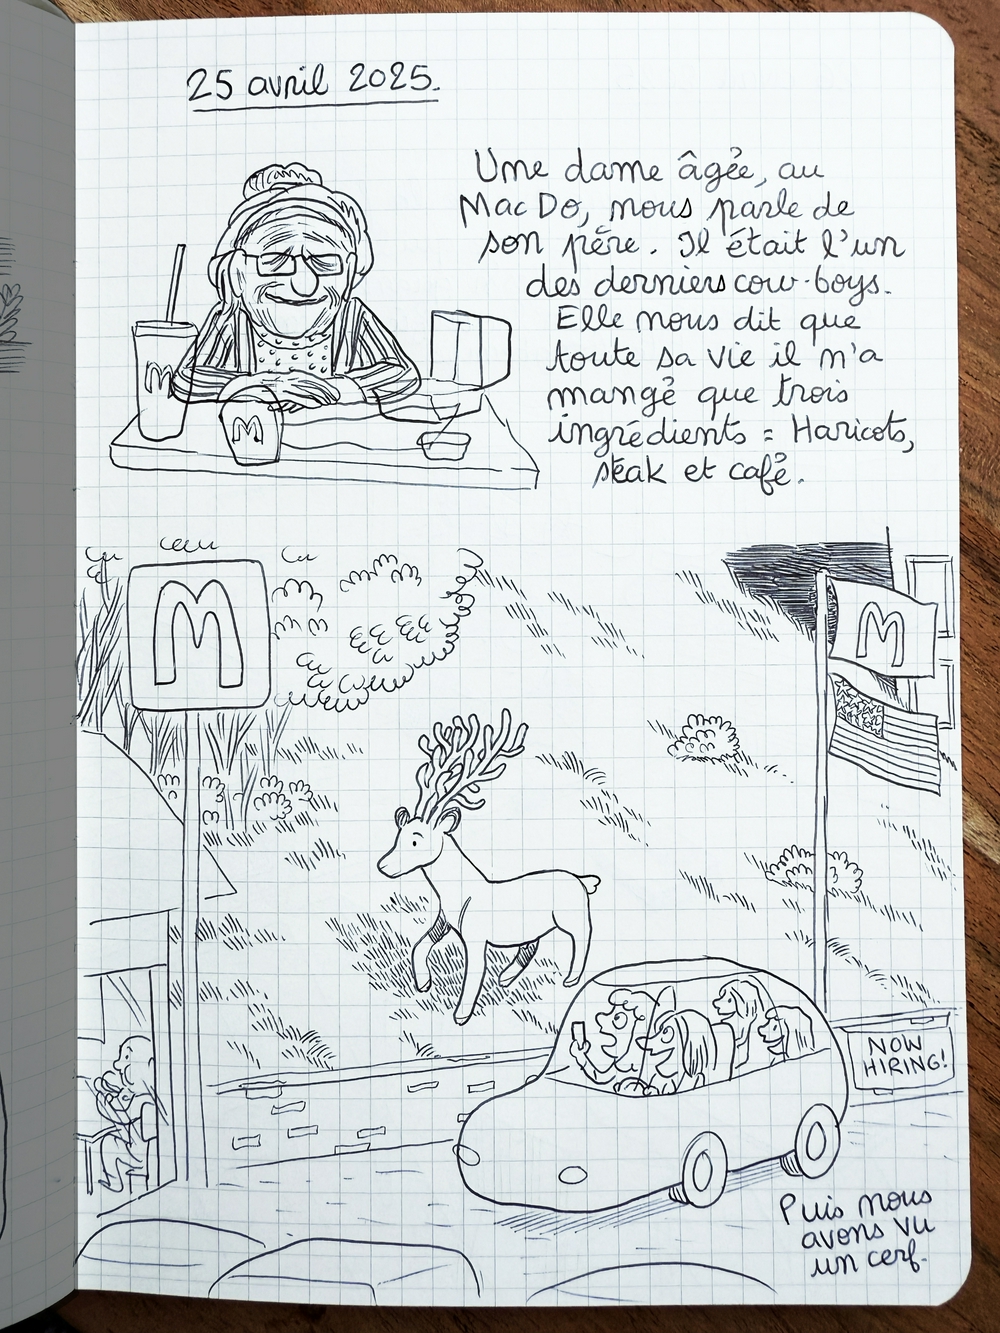 25 avril 2025.
Une dame âgée, au
Mac Do, nous parle de
son père. Il était l'un
des derniers cow-boys.
Elle nous dit que
toute sa vie il n'a
mangé que trois
ingrédients = Haricots,
steak et café.
M
M
M
M
NOW
HIRING!
Puis nous
avons vu
un cerf.